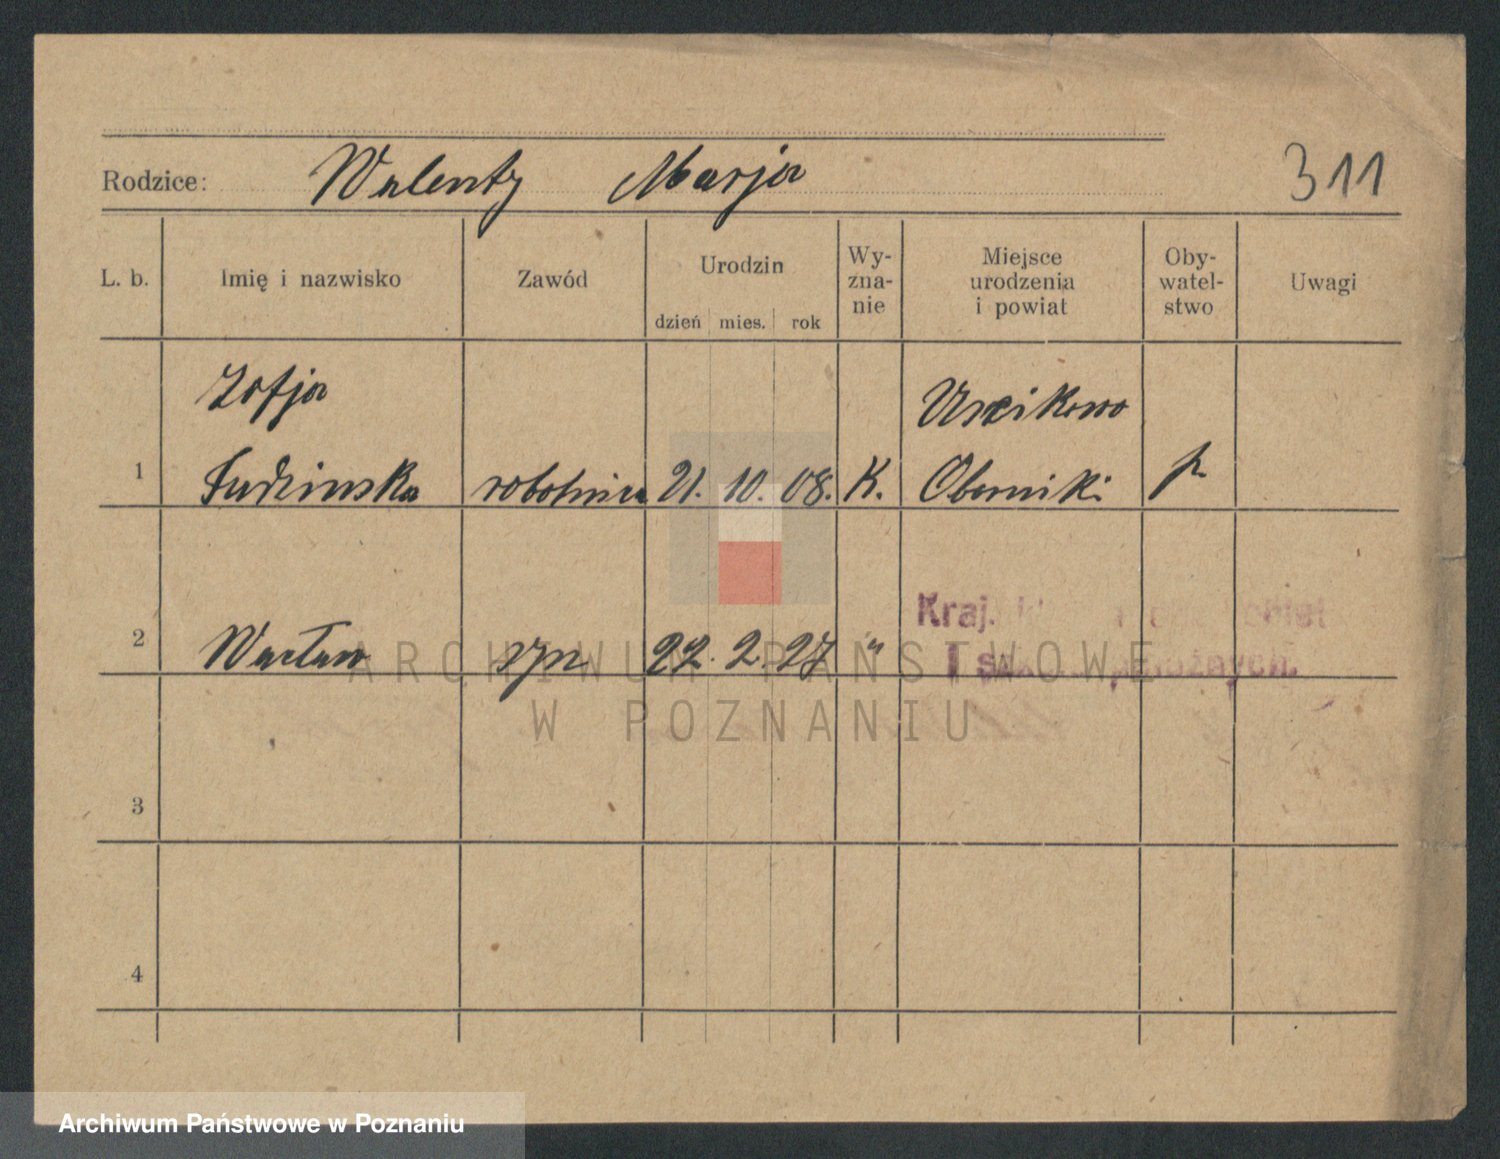 Rodzice: Walenty Marja
311
L. b. Imię i nazwisko Zawód Urodzin Wy-zna-nie Miejsce urodzenia i powiat Oby-watel-stwo Uwagi
dzień mies. rok
Zofja
1 robotnica 21. 10. 08. K. Oborniki p
2 Wacław syn 22. 2. 27 "
Kraj.
3
4
ARCHIWUM PAŃSTWOWE
W POZNANIU
Archiwum Państwowe w Poznaniu